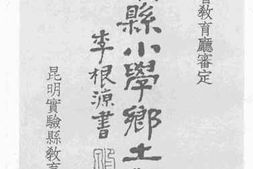 教育廳審定
縣小學鄉土
李根源書
昆明實驗縣教育